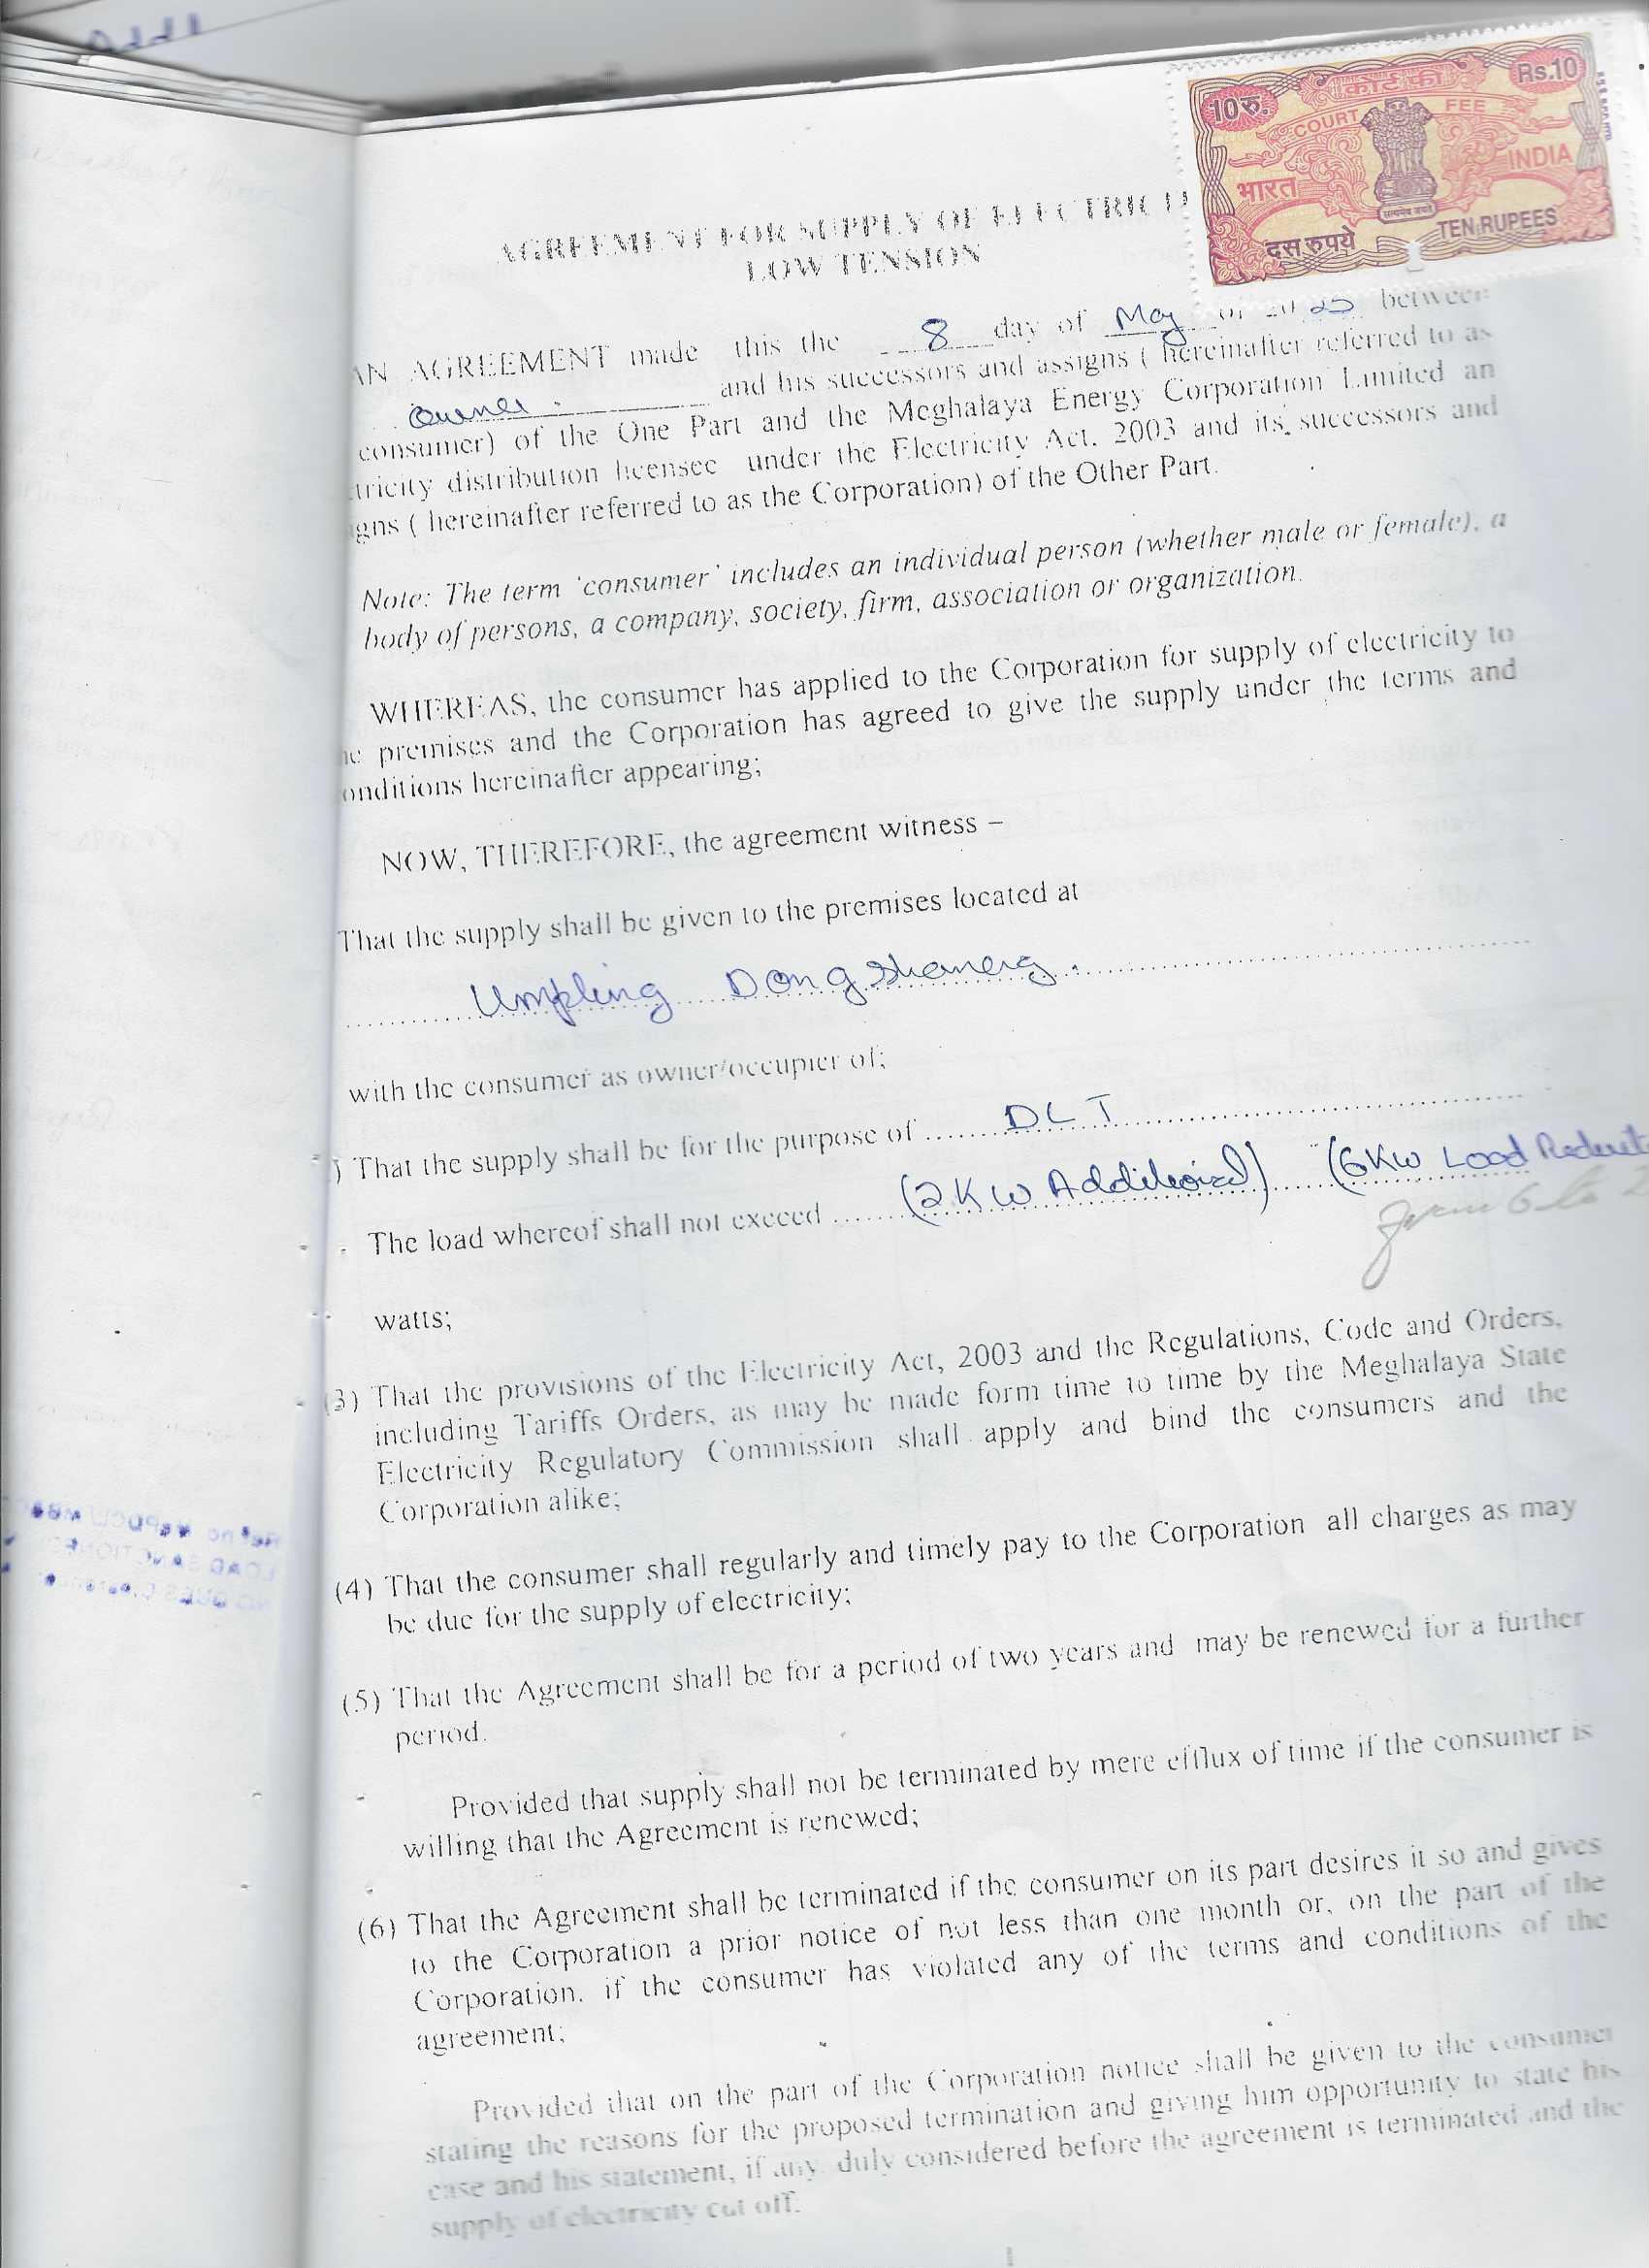 10रु. कोर्ट फी Rs.10
COURT FEE
भारत INDIA
सत्यमेव जयते
दस रुपये TEN RUPEES
AGREEMENT FOR SUPPLY OF ELECTRICI
LOW TENSION
AN AGREEMENT made this the 8 day of May of 20 25 between
Owner. and his successors and assigns ( hereinafter referred to as
consumer) of the One Part and the Meghalaya Energy Corporation Limited an
tricity distribution licensee under the Electricity Act. 2003 and its successors and
igns ( hereinafter referred to as the Corporation) of the Other Part.
Note: The term 'consumer' includes an individual person (whether male or female), a
body of persons, a company, society, firm, association or organization.
WHEREAS, the consumer has applied to the Corporation for supply of electricity to
he premises and the Corporation has agreed to give the supply under the terms and
onditions hereinafter appearing;
NOW, THEREFORE, the agreement witness –
That the supply shall be given to the premises located at
Umpling Dongshaneng.
with the consumer as owner/occupier of;
) That the supply shall be for the purpose of ...... DLT
The load whereof shall not exceed ...... (2KW Additional) (6KW Load Reduct
from 6 to 2
watts;
(3) That the provisions of the Electricity Act, 2003 and the Regulations, Code and Orders,
including Tariffs Orders, as may be made form time to time by the Meghalaya State
Electricity Regulatory Commission shall apply and bind the consumers and the
Corporation alike;
(4) That the consumer shall regularly and timely pay to the Corporation all charges as may
be due for the supply of electricity;
(5) That the Agreement shall be for a period of two years and may be renewed for a further
period.
Provided that supply shall not be terminated by mere efflux of time if the consumer is
willing that the Agreement is renewed;
(6) That the Agreement shall be terminated if the consumer on its part desires it so and gives
to the Corporation a prior notice of not less than one month or, on the part of the
Corporation, if the consumer has violated any of the terms and conditions of the
agreement;
Provided that on the part of the Corporation notice shall be given to the consumer
stating the reasons for the proposed termination and giving him opportunity to state his
case and his statement, if any, duly considered before the agreement is terminated and the
supply of electricity cut off.
1